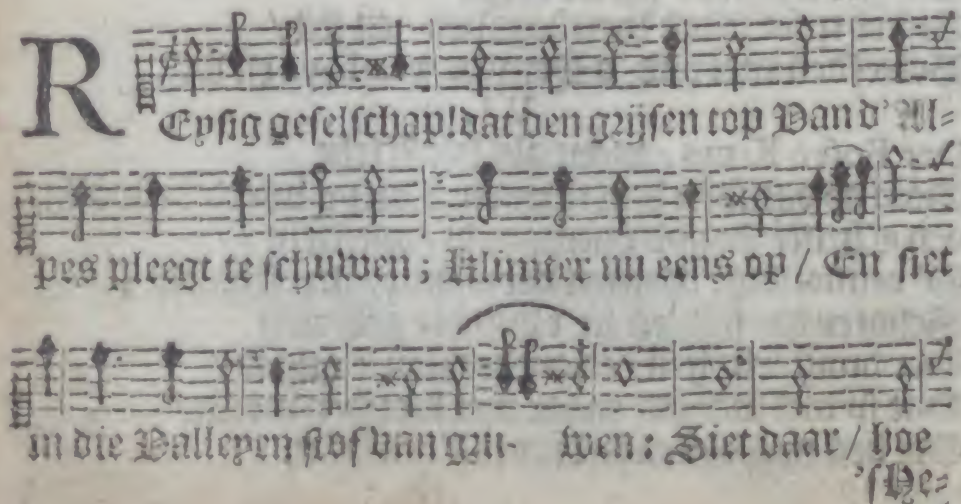 REysig geselschap! dat den grijsen top Van d' Al-
pes pleegt te schuwen; Klimter nu eens op / En siet
in die Valleyen stof van gru- wen: Siet daar / hoe
'sHe-